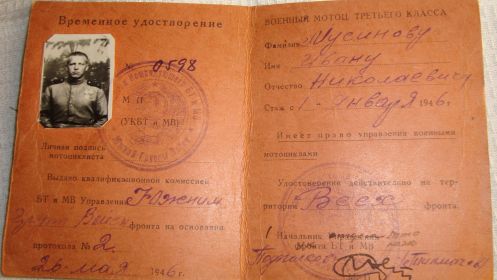 Временное удостоверение
№ 0598
М П
(УКБТ и МВ)
Личная подпись
мотоциклиста
Выдано квалификационной комиссией
БТ и МВ Управления Южной
Группы Войск фронта на основании
протокола № 2
26 мая 1946 г.
ВОЕННЫЙ МОТОЦ. ТРЕТЬЕГО КЛАССА
Фамилия Мусинову
Имя Ивану
Отчество Николаевичу
Стаж с 1 января 1946 г.
Имеет право управления военными
мотоциклами
Удостоверение действительно на тер-
ритории Всех фронта.
Начальник
фронта БТ и МВ